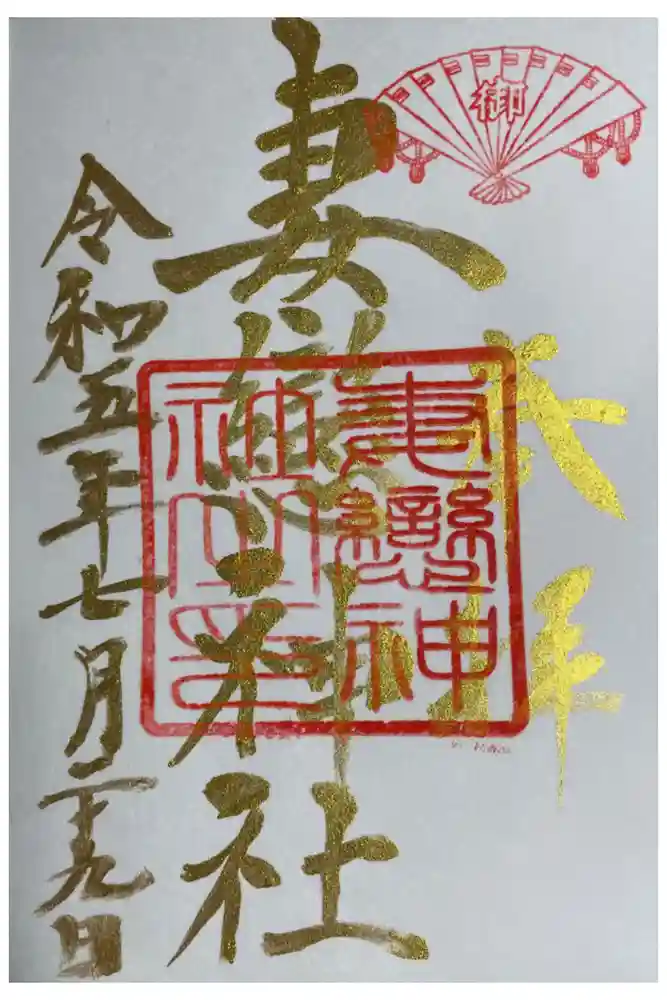 御
奉拝
妻戀神社
妻戀神
社之印
令和五年七月二十九日